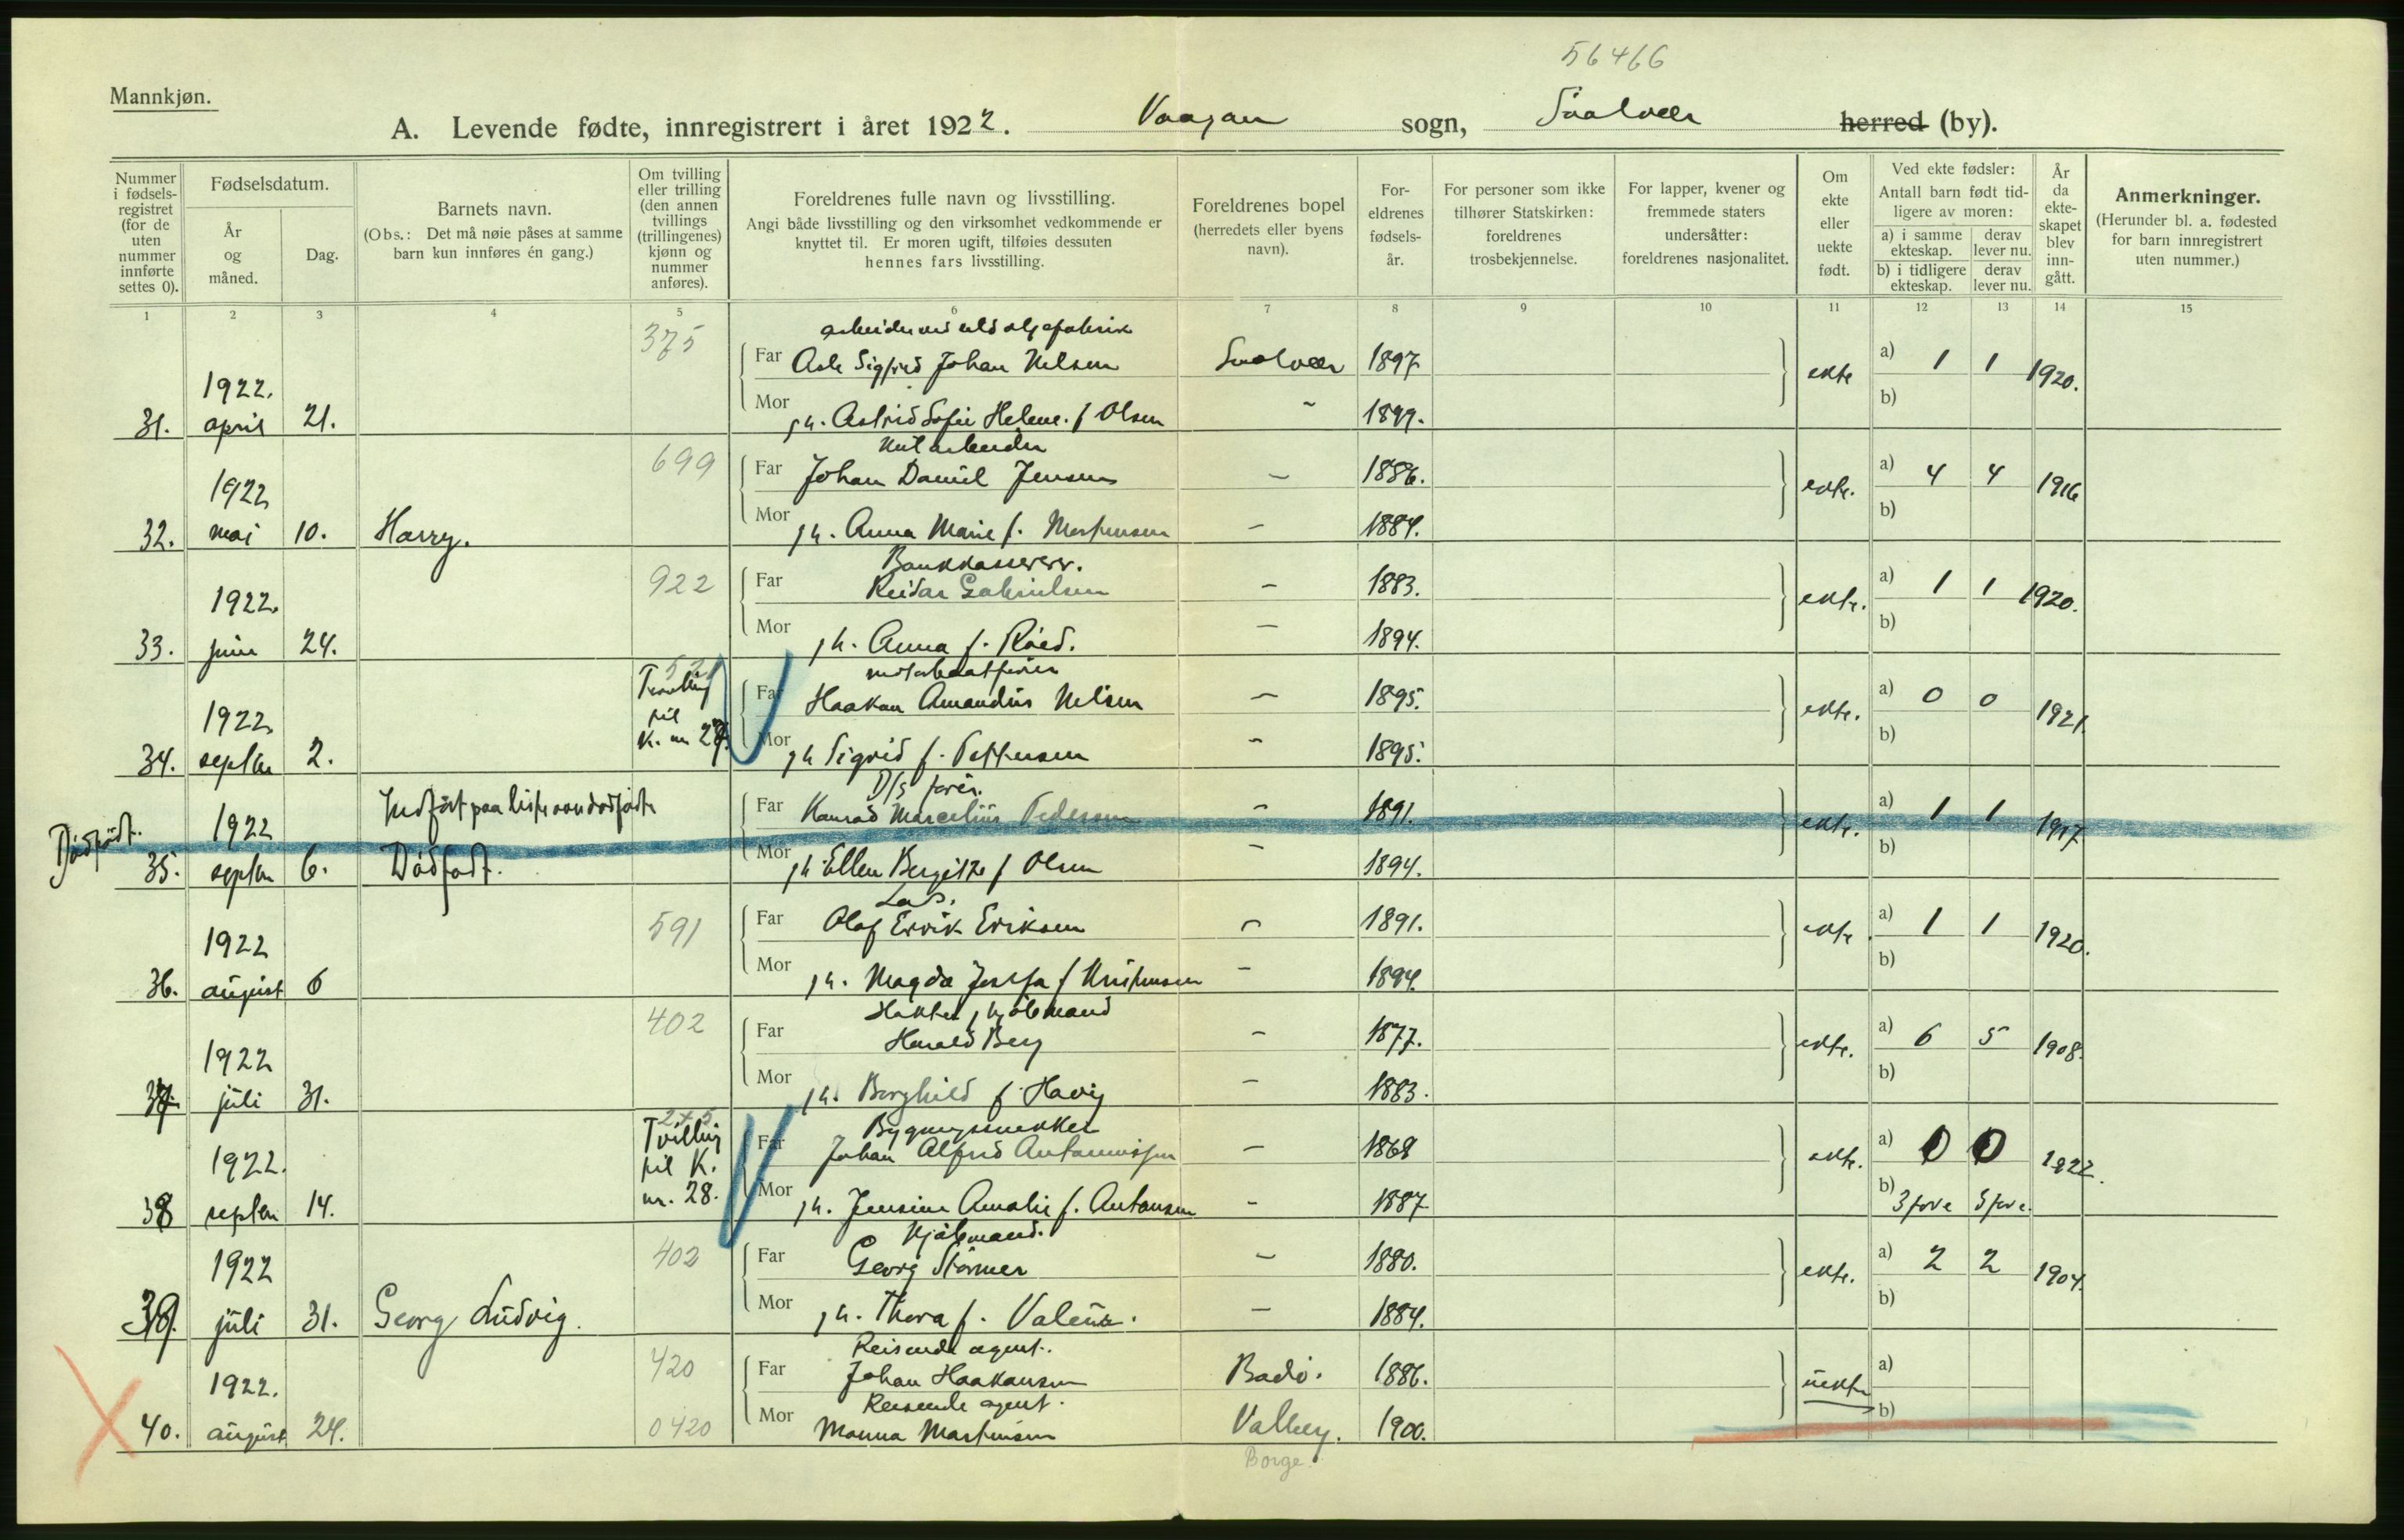 56466
Mannkjøn.
A. Levende fødte, innregistrert i året 1922. Vaagan sogn, Svolvær herred (by).
Nummer i fødsels-registret (for de uten nummer innførte settes 0).
Fødselsdatum.
År og måned.
Dag.
Barnets navn.
(Obs.: Det må nøie påses at samme barn kun innføres én gang.)
Om tvilling eller trilling (den annen tvillings (trillingenes) kjønn og nummer anføres).
Foreldrenes fulle navn og livsstilling.
Angi både livsstilling og den virksomhet vedkommende er knyttet til. Er moren ugift, tilføies dessuten hennes fars livsstilling.
Foreldrenes bopel (herredets eller byens navn).
For-eldrenes fødsels-år.
For personer som ikke tilhører Statskirken: foreldrenes trosbekjennelse.
For lapper, kvener og fremmede staters undersåtter: foreldrenes nasjonalitet.
Om ekte eller uekte født.
Ved ekte fødsler:
Antall barn født tid-ligere av moren:
a) i samme ekteskap.
derav lever nu.
b) i tidligere ekteskap.
derav lever nu.
År da ekte-skapet blev inn-gått.
Anmerkninger.
(Herunder bl. a. fødested for barn innregistrert uten nummer.)
1 2 3 4 5 6 7 8 9 10 11 12 13 14 15
375
Far Asle Sigfred Johan Nelsen Svolvær 1897 ekte a) 1 1 1920.
1922.
31. april 21. Mor h. Astrid Sofie Helene f Olsen 1899. b)
699
Far Johan Daniel Jensen 1886. ekte. a) 4 4 1916
1922
32. mai 10. Harry. Mor h. Anna Marie f. Mortensen 1884. b)
Bankkasserer.
922 Far Reidar Gabrielsen 1883. ekte. a) 1 1 1920.
1922.
33. juni 24. Mor h. Anna f. Røed. 1894. b)
521
Tvilling til K. nr 27. Far Haakon Amandus Nelsen 1895. ekte. a) 0 0 1921.
1922
34. septbr 2. Mor h Sigrid f. Pettersen 1895. b)
D/s fører.
Dødfødt. 1922 Indført paa liste over dødfødte Far Konrad Marcelius Pedersen 1891. ekte. a) 1 1 1917
35. septbr 6. Dødfødt. Mor h. Ellen Bergitte f Olsen 1894. b)
Los.
591 Far Olaf Ervik Eriksen 1891. ekte a) 1 1 1920.
1922
36. august 6 Mor h. Magda Josefa f Kristensen 1894. b)
402 Far Harald Berg 1877. ekte. a) 6 5 1908.
1922
37. juli 31. Mor h. Borghild f. Havig 1883. b)
245
Bygningssnekker
Tvilling til K. nr. 28. Far Johan Alfred Antoniussen 1868 ekte. a) 0 0 1922.
1922.
38 septbr 14. Mor h. Jensine Amalie f. Antonsen 1887 b) 3 før e 3 før e.
Kjøbmand.
402 Far Georg Størmer 1880. ekte. a) 2 2 1904.
1922
39. juli 31. Georg Ludvig. Mor h. Thora f. 1884. b)
Reisende agent.
420 Far Johan Haakonsen Bodø. 1886. uekte a)
1922.
Reisende agent.
40. august 24. 0420 Mor Manna Martinsen Valberg. 1900. b)
Borge.